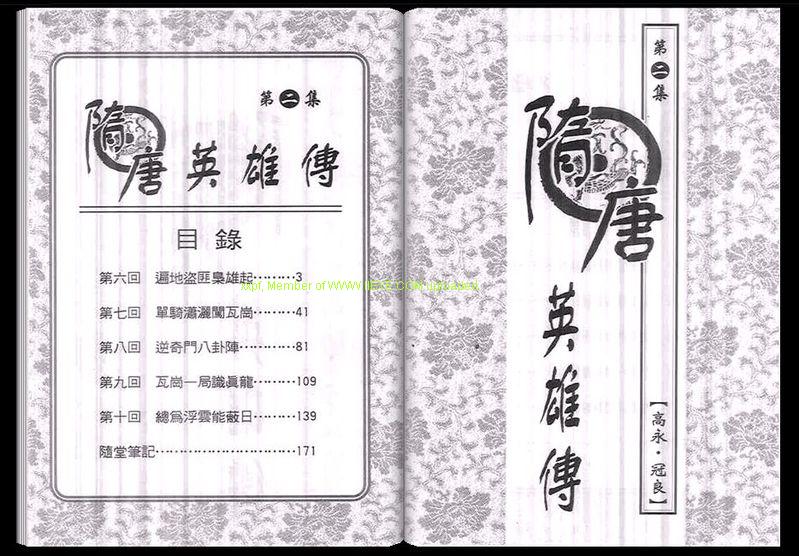 第二集
隋唐英雄傳
【高永·冠良】
第二集
隋唐英雄傳
目錄
第六回 遍地盜匪梟雄起………3
第七回 單騎瀟灑闖瓦崗………41
第八回 逆奇門八卦陣………81
第九回 瓦崗一局識眞龍………109
第十回 總爲浮雲能蔽日………139
隨堂筆記……………………171
Member of WWW